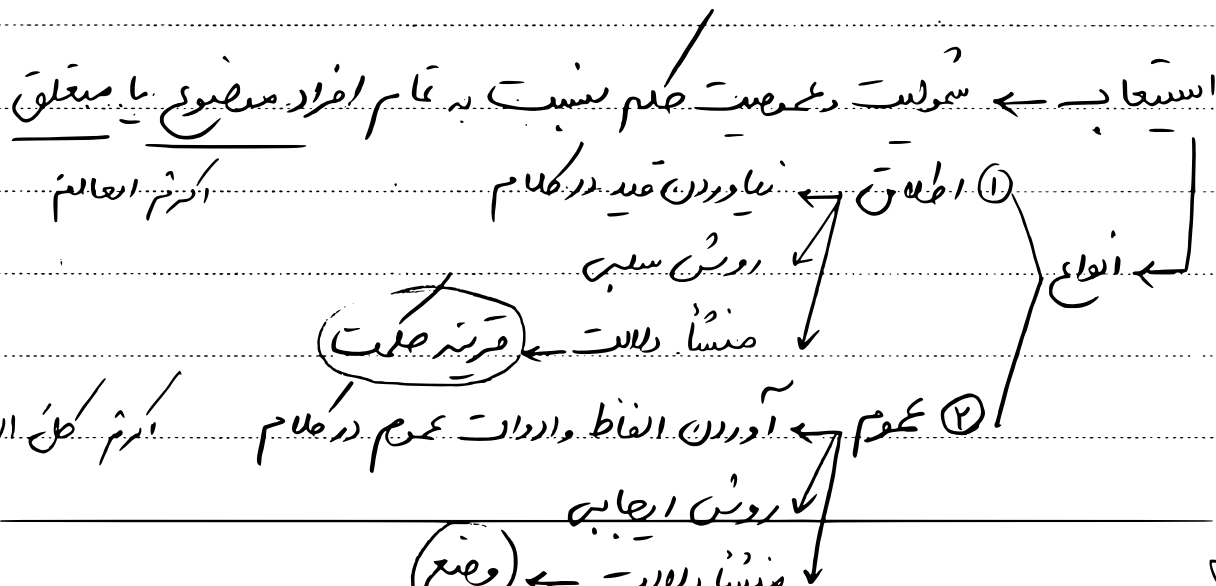 استیعاب ← شمولیت و عمومیت حکم نسبت به تمام افراد موضوع یا متعلق
① اطلاق ← نیاوردن قید در کلام اکرم العالم
انواع
روش سلبی
منشأ دلالت ← قرینه حکمت
② عموم ← آوردن الفاظ و ادوات عموم در کلام اکرم کل
روش ایجابی
منشأ دلالت ← وضع